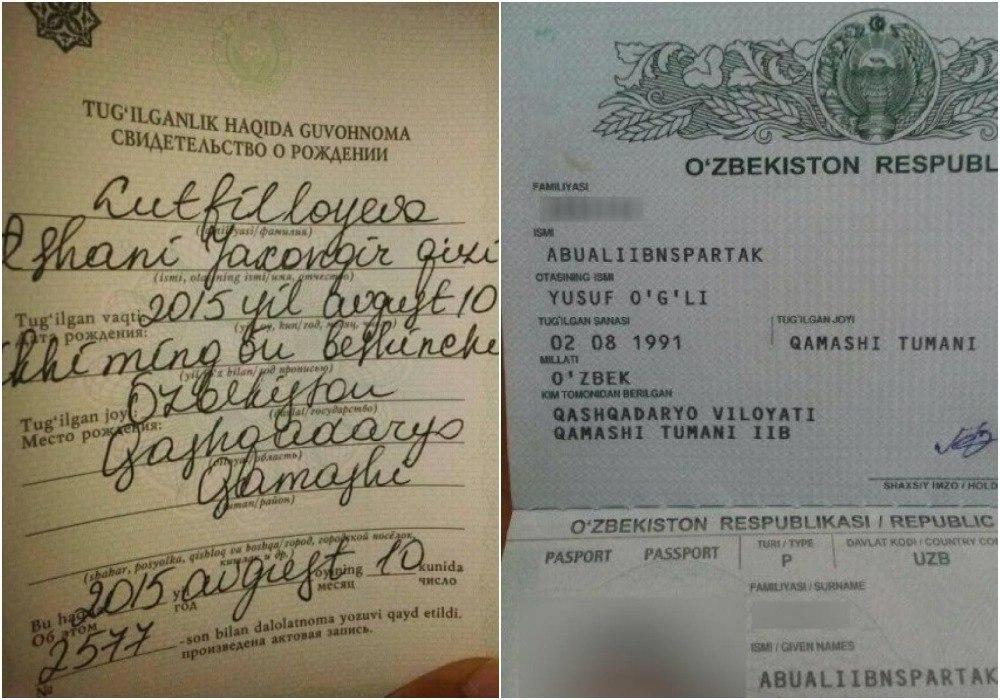 TUG‘ILGANLIK HAQIDA GUVOHNOMA
СВИДЕТЕЛЬСТВО О РОЖДЕНИИ
Lutfilloyeva
(familiyasi/фамилия)
Eshani Jaxongir qizi
(ismi, otasining ismi/имя, отчество)
Tug‘ilgan vaqti 2015 yil avgust 10
Дата рождения:
ikki ming bu beshinchi
Tug‘ilgan joyi: O'zbekiston
Место рождения:
(davlat/государство)
Qashqadaryo
(viloyat/область)
Qamashi
(tuman/район)
(shahar, posyolka, qishloq va boshqa/город, городской посёлок, кишлак и др.)
Bu haqda 2015 yil avgust oyining 10 kunida
Об этом год месяц число
№ 2577 -son bilan dalolatnoma yozuvi qayd etildi.
произведена актовая запись.
O‘ZBEKISTON RESPUBL
FAMILIYASI
ISMI
ABUALIIBNSPARTAK
OTASINING ISMI
YUSUF O'G'LI
TUG‘ILGAN SANASI
02 08 1991
TUG‘ILGAN JOYI
QAMASHI TUMANI
MILLATI
O'ZBEK
KIM TOMONIDAN BERILGAN
QASHQADARYO VILOYATI
QAMASHI TUMANI IIB
SHAXSIY IMZO / HOLD
O‘ZBEKISTON RESPUBLIKASI / REPUBLIC
PASPORT PASSPORT
TURI / TYPE
P
DAVLAT KODI / COUNTRY CO
UZB
FAMILIYASI / SURNAME
ISMI / GIVEN NAMES
ABUALIIBNSPARTAK